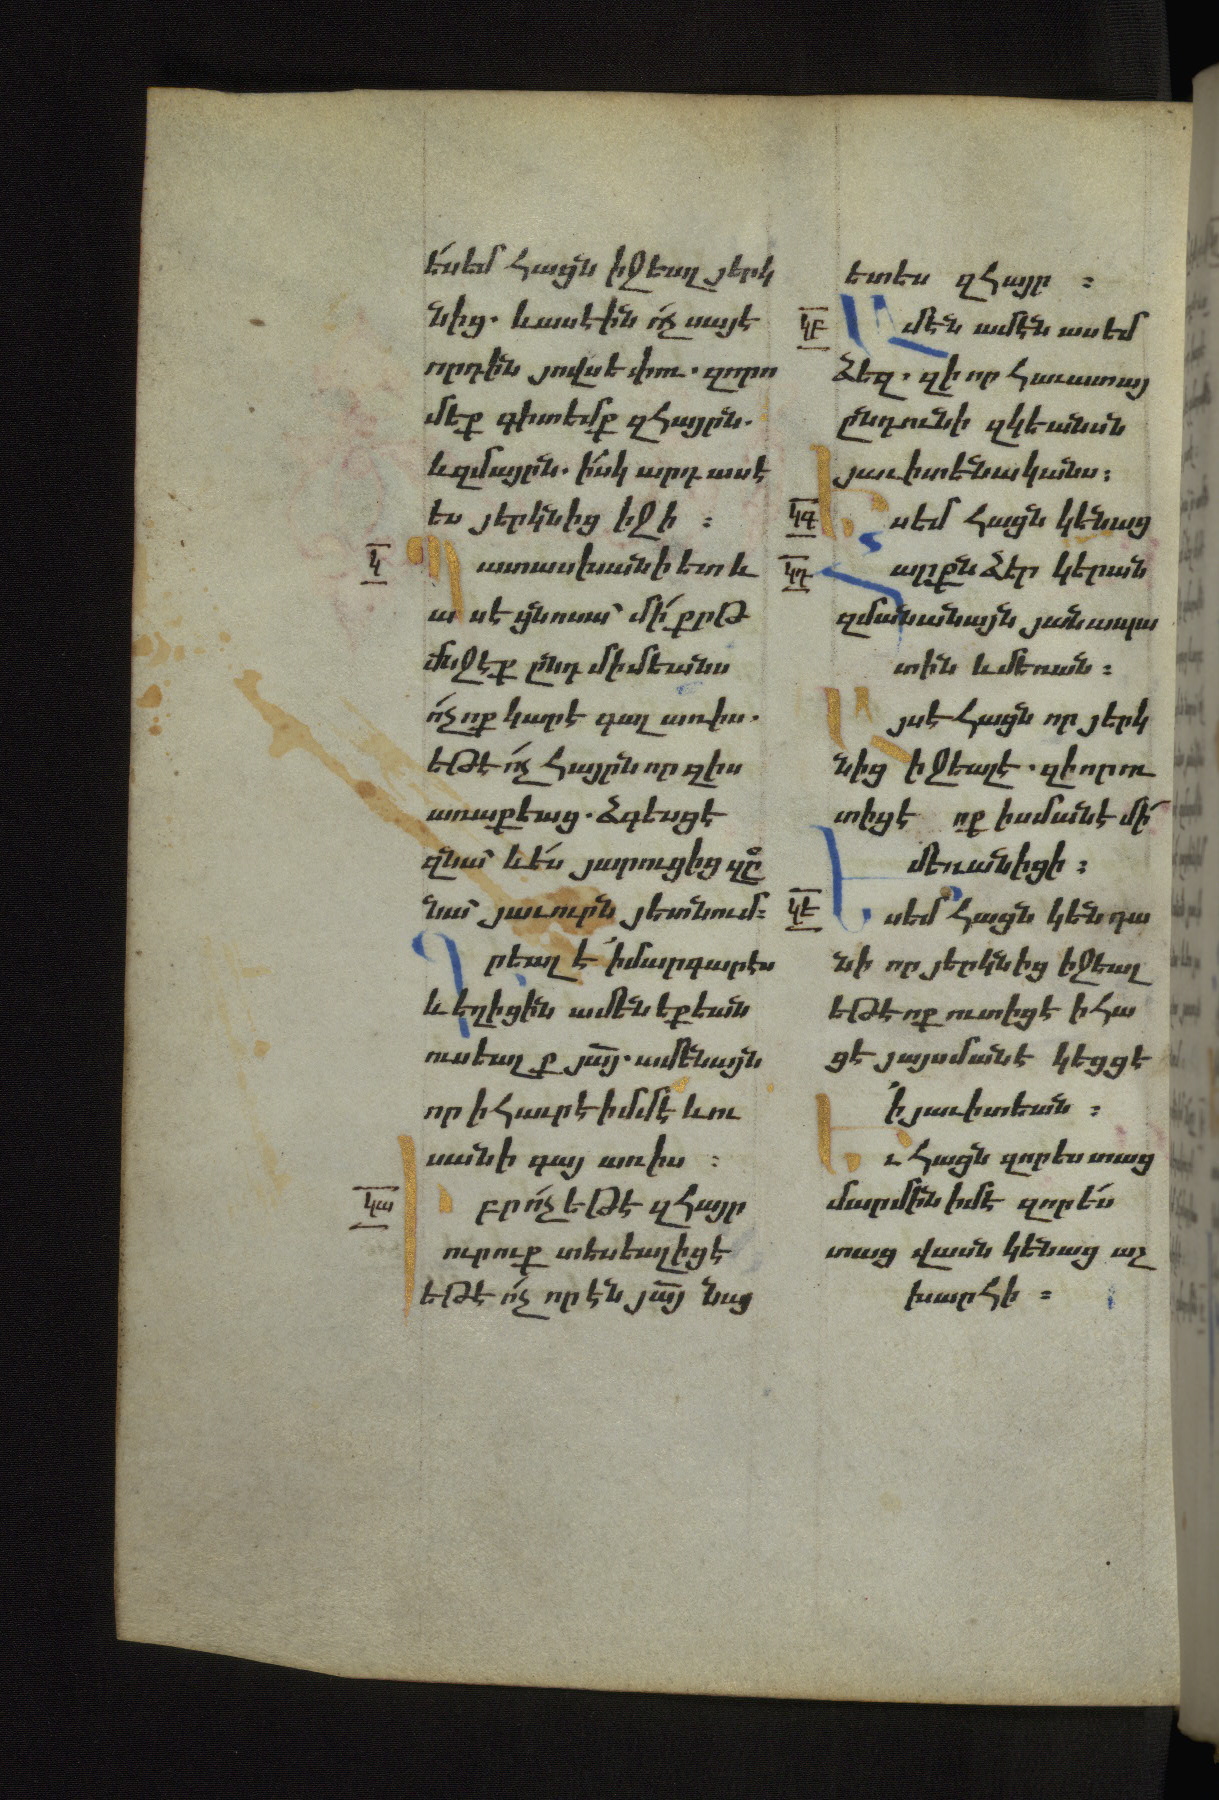 ե՛ս եմ հացն իջեալ յերկ
նից. և ասէին ո՛չ սայ է
որդին յովսեփու. զորո
մեք գիտեմք զհայրն.
և զմայրն. ի՛սկ արդ ասէ
ես յերկնից իջի ։
Կ Պատասխանի ետ և
ասէ ցնոսա՝ մի՛ քրթ
մնջէք ընդ միմեանս
ո՛չ ոք կարէ գալ առիս.
եթէ ո՛չ հայրն որ զիս
առաքեաց. ձգեսցէ
զնա՝ և ե՛ս յարուցից զը
նա՝ յաւուրն յետնում։
Գրեալ է ՛ի մարգարէս
և եղիցին ամէնեքեան
ուսեալ ք յա̅յ. ամենայն
որ ի հաւրէ իմմէ և ու
սանի գայ առիս ։
ԿԱ Իբր ո՛չ եթէ զհայր
ուրուք տեսեալ իցէ
եթէ ո՛չ որ էն յա̅յ նաց
ետես զհայր ։
ԿԲ Ամէն ամէն ասեմ
ձեզ. զի որ հաւատայ
ընդունի զկեանսն
յաւիտենականս։
ԿԳ Ես եմ հացն կենաց
ԿԴ Հարքն ձեր կերան
զմանանայն յանապա
տին և մեռան ։
Այս է հացն որ յերկ
նից իջեալ է. զի որ ու
տիցէ ոք ի սմանէ մի՛
մեռանիցի ։
ԿԵ Ես եմ հացն կենդա
նի որ յերկնից իջեալ
եթէ ոք ուտիցէ ի հա
ցէ յայսմանէ կեցցէ
՛ի յաւիտեան ։
Եւ հացն զոր ես տաց
մարմին իմ է զոր ե՛ս
տաց վասն կենաց աշ
խարհի ։